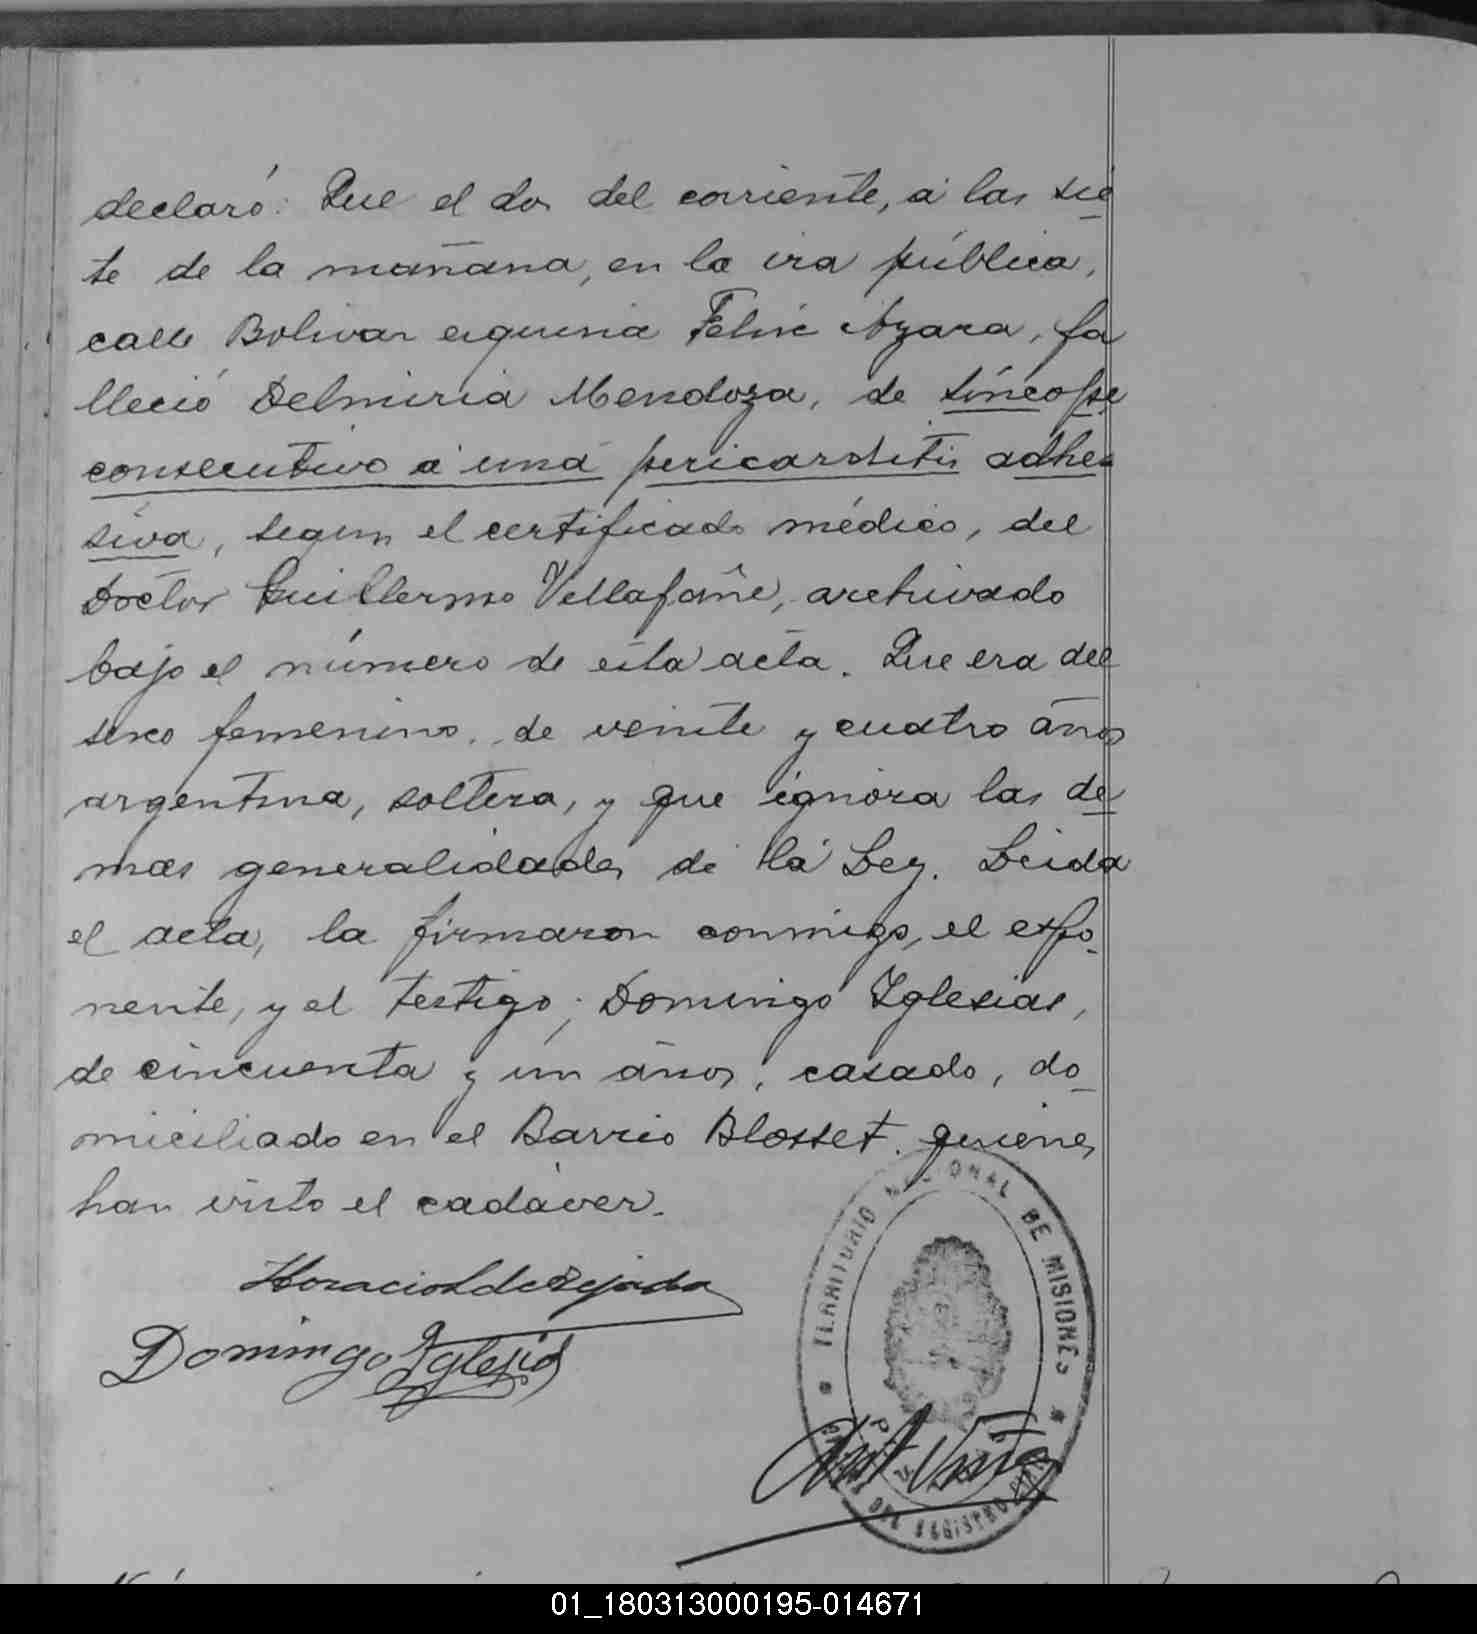 declaró: Que el dos del corriente, a las sie
te de la mañana, en la via pública,
calle Bolivar esquina Felix Azara, fa
lleció Delmiria Mendoza, de síncope
consecutivo a una pericarditis adhe-
siva, segun el certificado médico, del
Doctor Guillermo Villafañe, archivado
bajo el número de esta acta. Que era del
sexo femenino, de veinte y cuatro años
argentina, soltera, y que ignora las de
mas generalidades de la Ley. Leida
el acta, la firmaron conmigo, el expo-
nente, y el testigo; Domingo Iglesias,
de cincuenta y un años, casado, do-
miciliado en el Barrio Blosset. quienes
han visto el cadáver.
Horacio
Domingo Iglesias
TERRITORIO NACIONAL DE MISIONES
DEL REGISTRO
01_180313000195-014671